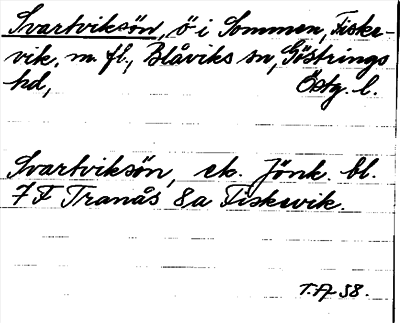 Svartviksön, ö i Sommen, Fiske-
vik, m. fl., Blåviks sn, Göstrings
hd, Östg. l.
Svartviksön, ek. Jönk. bl.
7 F Tranås 8a Fiskevik.
T.A 58.